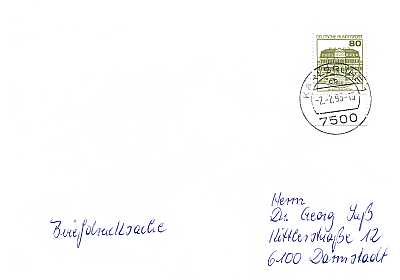 80
DEUTSCHE BUNDESPOST
KARLSRUHE 1
7500
Briefdrucksache
Herrn
Dr. Georg Juß
Kittlerstraße 12
6100 Darmstadt